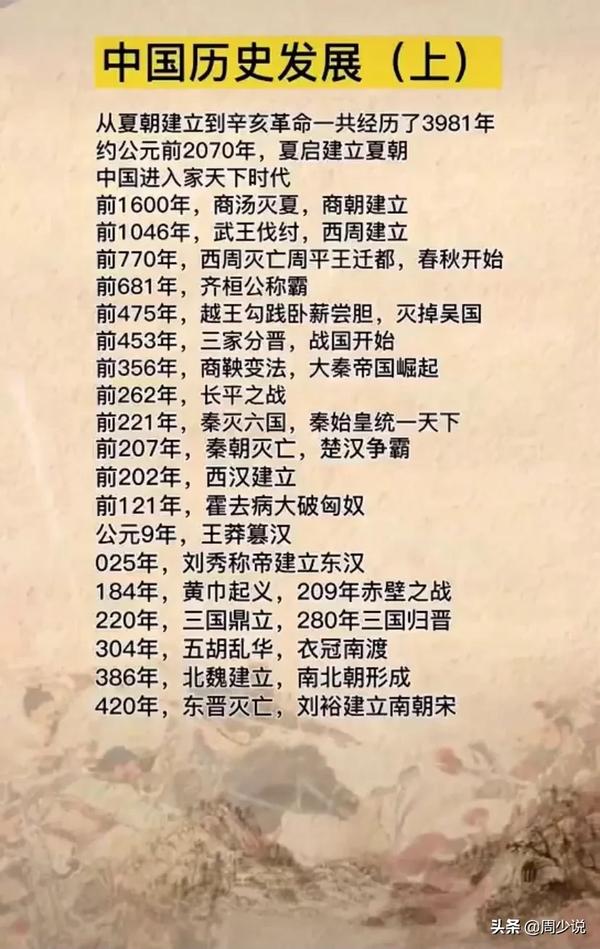 中国历史发展（上）
从夏朝建立到辛亥革命一共经历了3981年
约公元前2070年，夏启建立夏朝
中国进入家天下时代
前1600年，商汤灭夏，商朝建立
前1046年，武王伐纣，西周建立
前770年，西周灭亡周平王迁都，春秋开始
前681年，齐桓公称霸
前475年，越王勾践卧薪尝胆，灭掉吴国
前453年，三家分晋，战国开始
前356年，商鞅变法，大秦帝国崛起
前262年，长平之战
前221年，秦灭六国，秦始皇统一天下
前207年，秦朝灭亡，楚汉争霸
前202年，西汉建立
前121年，霍去病大破匈奴
公元9年，王莽篡汉
025年，刘秀称帝建立东汉
184年，黄巾起义，209年赤壁之战
220年，三国鼎立，280年三国归晋
304年，五胡乱华，衣冠南渡
386年，北魏建立，南北朝形成
420年，东晋灭亡，刘裕建立南朝宋
头条 @周少说